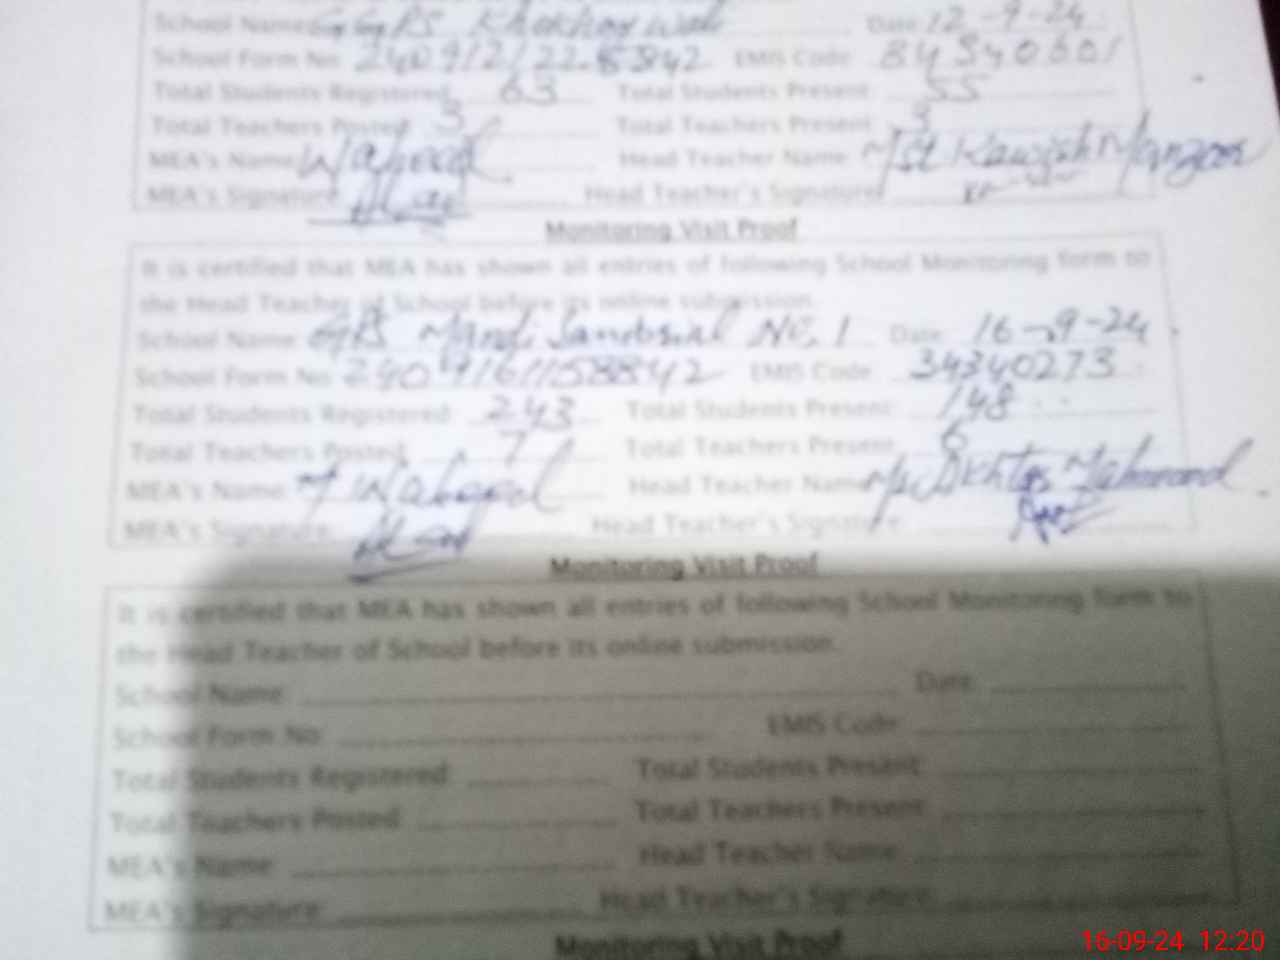 School Name: GGPS Khokhar Wali Date: 12-9-24
School Form No: EMIS Code:
Total Students Registered: 63 Total Students Present: 55
Total Teachers Posted: 3 Total Teachers Present: 3
MEA's Name: Waheed Head Teacher Name: Mst Manzoor
MEA's Signature: Head Teacher's Signature:
Monitoring Visit Proof
It is certified that MEA has shown all entries of following School Monitoring form to
the Head Teacher of School before its online submission.
School Name: GPS Mandi No. 1 Date: 16-9-24
School Form No: EMIS Code: 34340273
Total Students Registered: 243 Total Students Present: 148
Total Teachers Posted: 7 Total Teachers Present: 6
MEA's Name: M Waheed Head Teacher Name: Akhtar Mahmood
MEA's Signature: Head Teacher's Signature:
Monitoring Visit Proof
It is certified that MEA has shown all entries of following School Monitoring form to
the Head Teacher of School before its online submission.
School Name: Date:
School Form No: EMIS Code:
Total Students Registered: Total Students Present:
Total Teachers Posted: Total Teachers Present:
MEA's Name: Head Teacher Name:
MEA's Signature: Head Teacher's Signature:
Monitoring Visit Proof
16-09-24 12:20